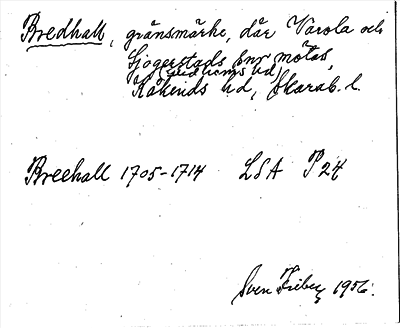 Bredhall, gränsmärke, där Varola och
Sjogerstads snr mötas,
Kåkinds hd, Skarab. l.
Breehall 1705-1714 LSA P 24
Sven Friberg 1956.